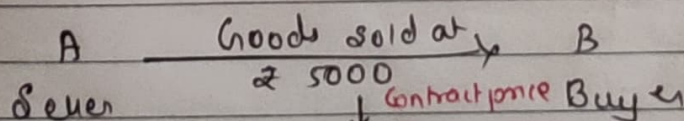 A Goods sold at B
₹ 5000
Seller Contract price Buyer